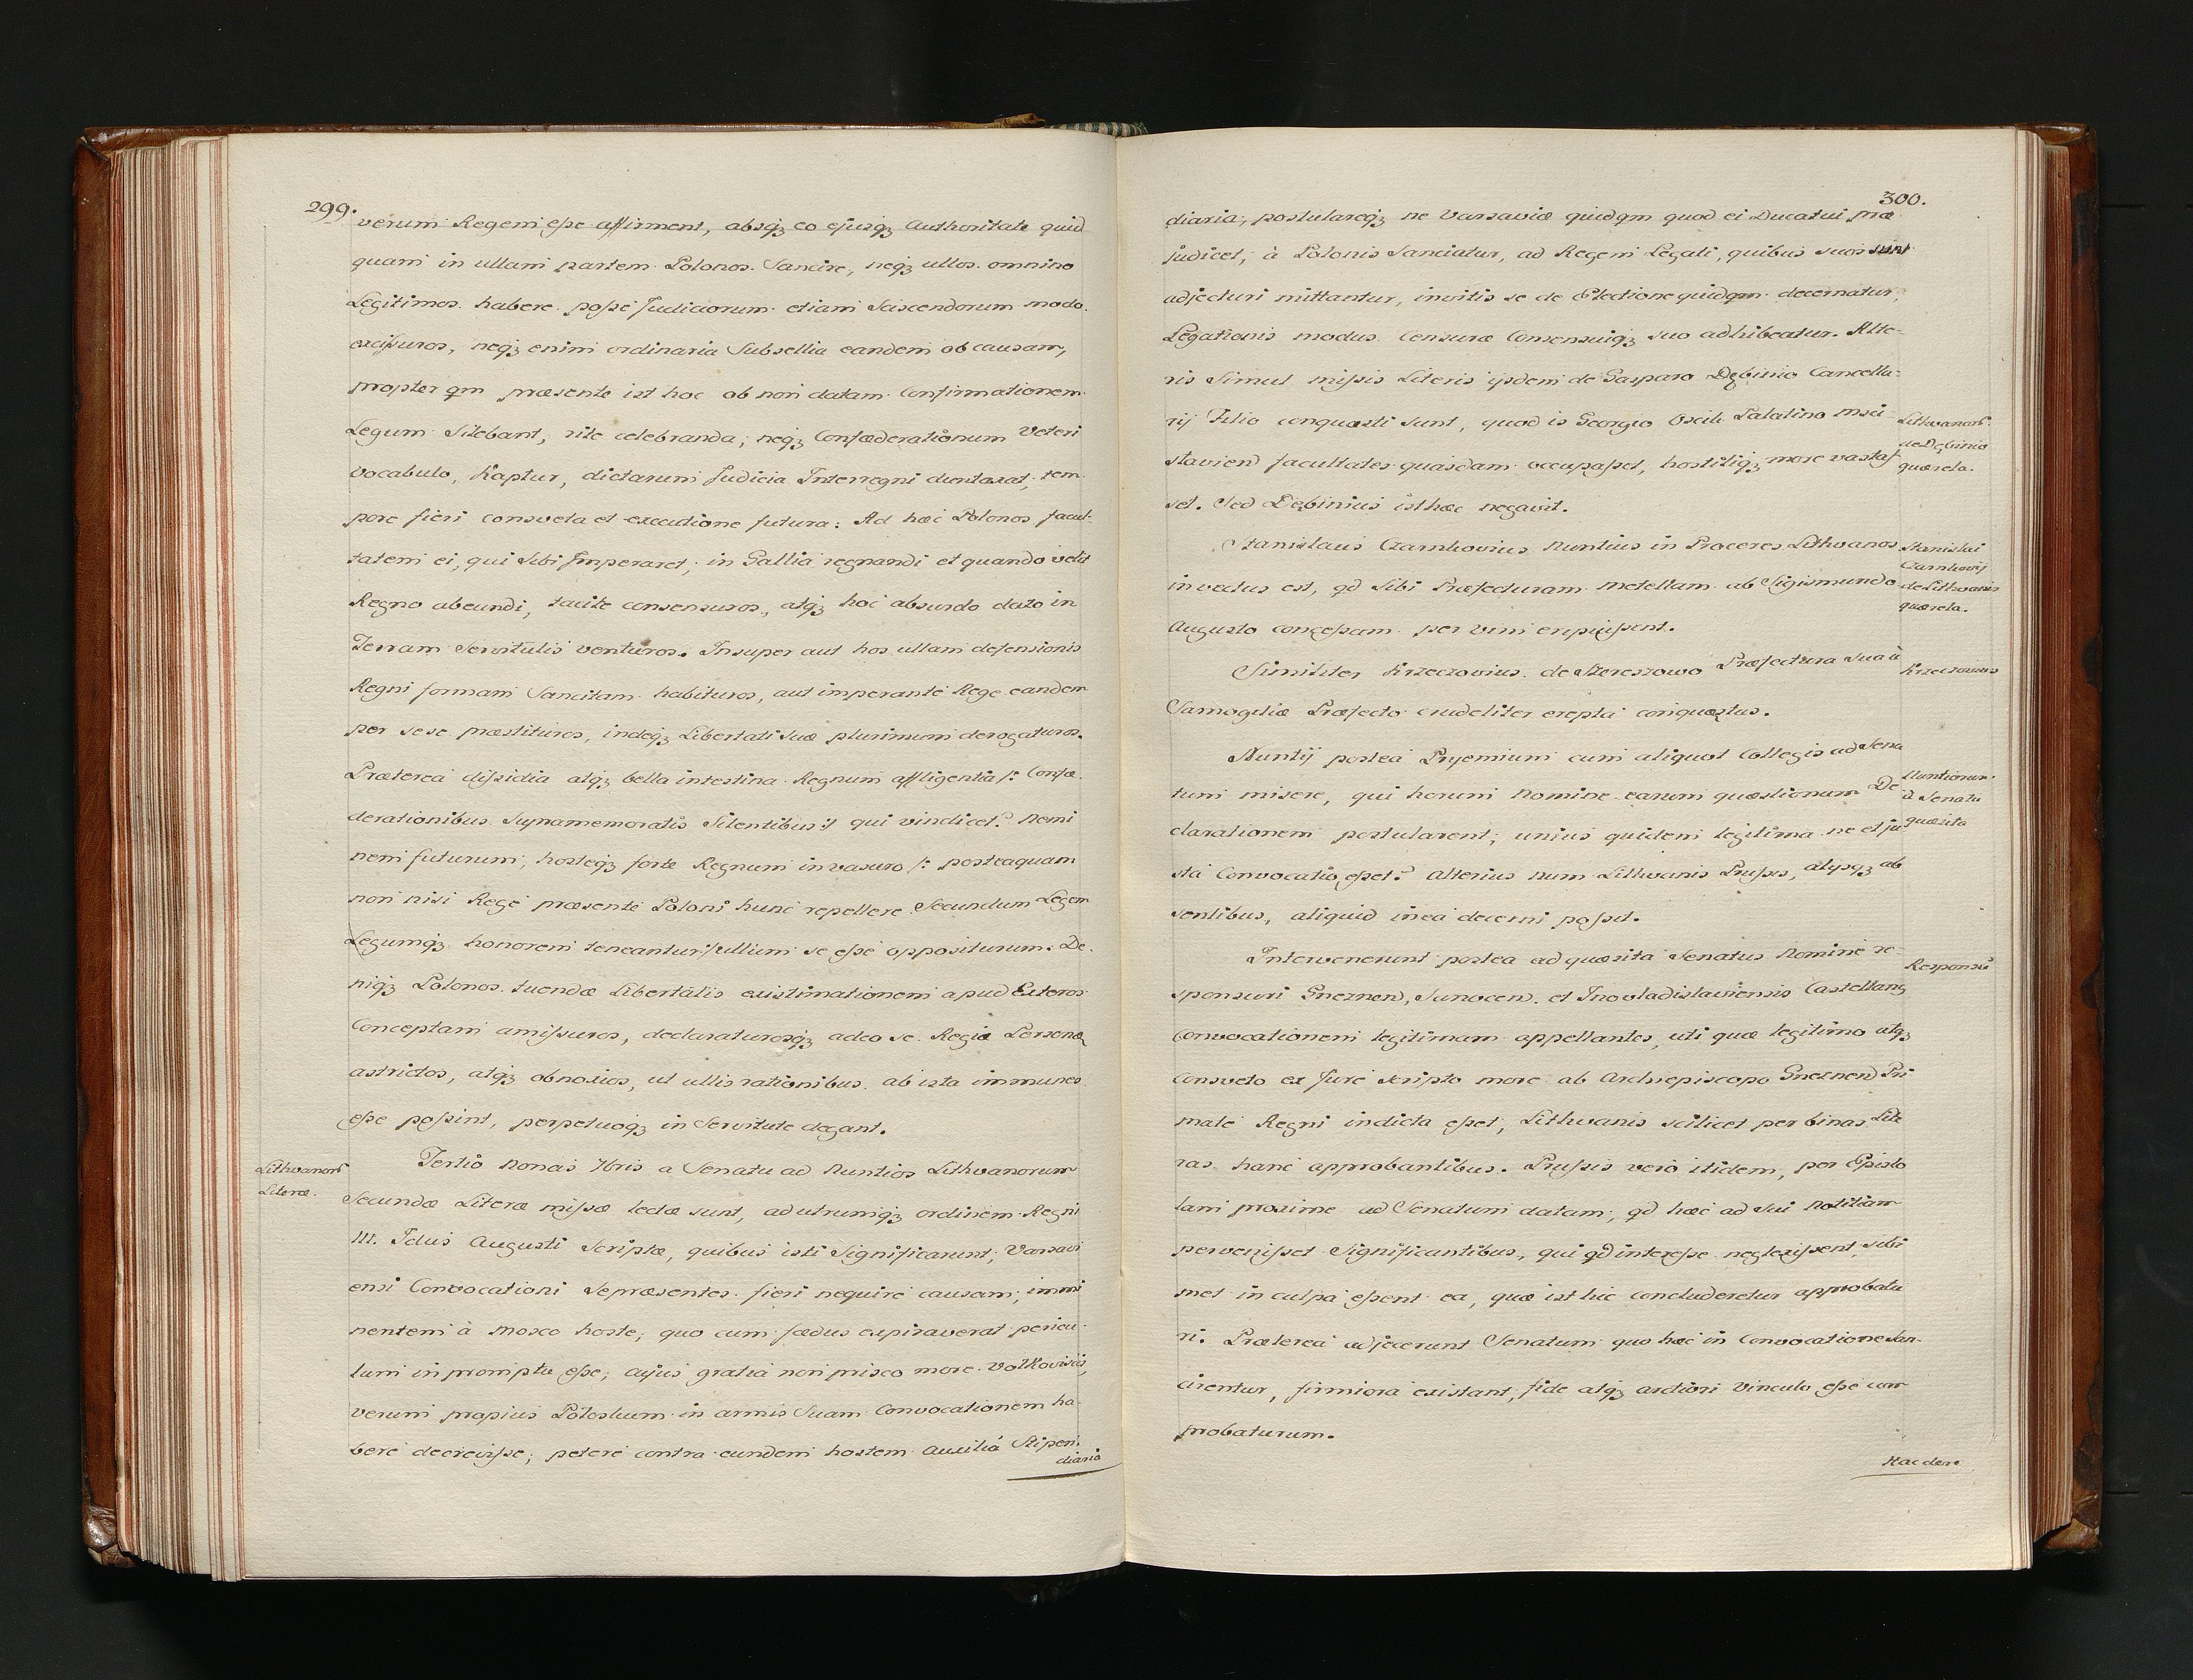 299.
verum Regem eſse affirment, absqꝫ eo ejusqꝫ Authoritate quid
quam in ullam partem Polonos Sancire, neqꝫ ullos omnino
Legitimos habere poſse Judiciorum etiam Sciscendorum modo
neqꝫ enim ordinaria Subsellia eandem ob causam,
propter qm præsente ist hoc ob non datam Confirmationem
Legum Silebant, rite celebranda; neqꝫ Confæderationum Veteri
vocabulo, Kaptur, dictarum Judicia Interregni duntaxat, tem
pore fieri consveta et executione futura: Ad hæc Polonos facul-
tatem ei, qui Sibi Imperaret, in Gallia regnandi et quando velit
Regno abeundi, tacite consensuros, atqꝫ hoc absurdo dato in
Terram Servitutis venturos. Insuper aut hos ullam defensionis
Regni formam Sancitam habituros, aut imperante Rege eandem
per sese præstituros, indeqꝫ Libertati Suæ plurimum derogaturos.
Præterea diſsidia atqꝫ bella intestina Regnum affligentia /: Confæ-
derationibus Supramemoratis Silentibus :/ qui vindicet? Nemi
nem futurum, hosteqꝫ forte Regnum invasuro /: posteaquam
non nisi Rege præsente Poloni hunc repellere Secundum Legem
Legumqꝫ honorem teneantur :/ ullum se eſse oppositurum. De-
niqꝫ Polonos tuendæ Libertatis existimationem apud Exteros
Conceptam amiſsuros, declaraturosqꝫ adeo se Regiæ Personæ
astrictos, atqꝫ obnoxios, ut ullis rationibus ab ista immunes
eſse poſsint, perpetuoqꝫ in Servitute degant.
Lithvanorũ
Literæ.
Tertio Nonas 7bris a Senatu ad Nuntios Lithvanorum
Secundæ Literæ miſsæ lectæ sunt, ad utrumqꝫ ordinem Regni
III. Idus Augusti Scriptæ, quibus isti Significarunt, Varsavi
ensi Convocationi Se præsentes fieri nequire causam, immi
nentem à Mosco hoste, quo cum fædus expiraverat pericu-
lum in promptu eſse; cujus gratia non prisco more Volkovisiis,
verum propius Poloskum in armis Suam Convocationem ha-
bere decreviſse, petere contra eundem hostem Auxilia Stipen
diaria
300.
diaria, postulareqꝫ ne Varsaviæ quidqm quod ei Ducatui præ
judicet, à Polonis Sanciatur, ad Regem Legati, quibus suos sint
adjecturi mittantur, invitis se de Electione quidqm decernatur,
Legationis modus Censuræ Consensuiqꝫ suo adhibeatur. Alte-
ris Simul miſsis Literis ijsdem de Gasparo Dębinio Cancella-
rij Filio conquæsti sunt, quod is Georgio Oscik Palatino Msci-
slavien facultates quasdam occupaſset, hostiliqꝫ more vastaſ
set. Sed Dębinius isthæc negavit.
Lithvanorũ
de Dębinio
quærela.
Stanislaus Czarnkovius Nuntius in Proceres Lithvanos
invectus est, qd Sibi Præfecturam Metellam ab Sigismundo
Augusto conceſsam per vim eripuiſsent.
Stanislai
Czarnkovij
de Lithvanis
quærela.
Similiter Krzeczovius de Szereszowo Præfectura sua à
Samogitiæ Præfecto crudeliter erepta conquæstus.
Krzeczovius
Nuntij postea Pryemium cum aliquot Collegis ad Sena
tum misere, qui horum Nomine earum quæstionum De
clarationem postularent; unius quidem legitima ne et ju
sta Convocatio eſset? alterius num Lithvanis Pruſsis, alijsqꝫ ab
sentibus, aliquid in ea decerni poſsit.
Nuntiorum
à Senatu
quæsita
Intervenerunt postea ad quæsita Senatus Nomine re-
sponsuri Gneznen, Sanocen. et Inovladislaviensis Castellany
Convocationem legitimam appellantes, uti quæ legitimo atqꝫ
consveto ex Jure Scripto more ab Archiepiscopo Gneznen Pri
mate Regni indicta eſset, Lithvanis scilicet per binas Lite
ras hanc approbantibus. Pruſsis vero itidem, per Episto
lam proxime ad Senatum datam, qd hæc ad sui Notitiam
perveniſset Significantibus, qui qd intereſse neglexiſsent, sibi
met in culpa eſsent ea, quæ ist hic concluderetur approbatu
ri. Præterea adjecerunt Senatum quo hæc in Convocatione San-
cirentur, firmiora existant, fide atqꝫ arctiori Vinculo eſse com
probaturum.
Responsũ
Hac dere